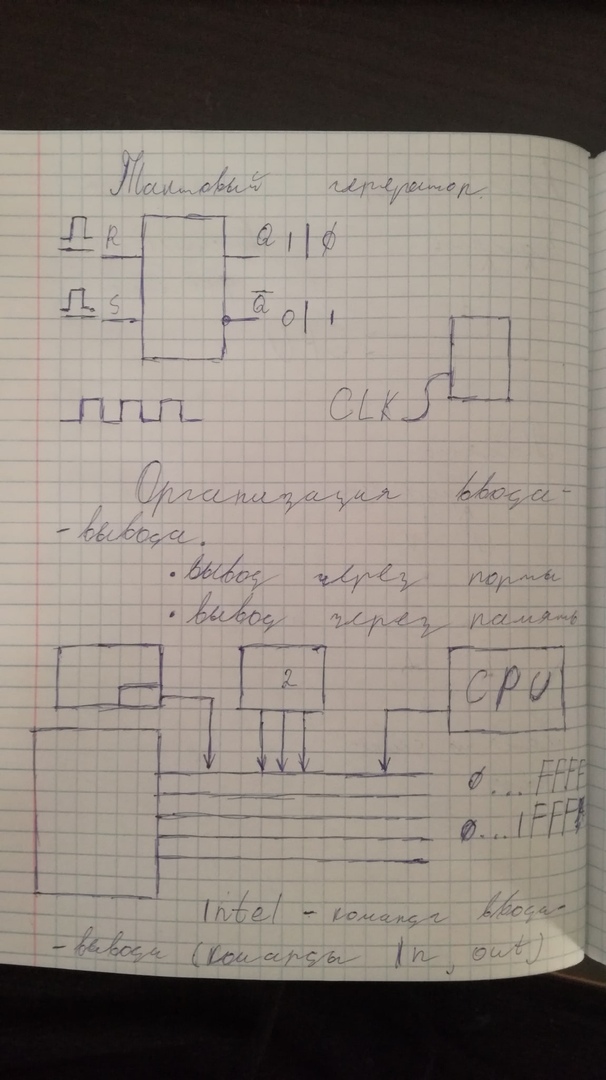 Тактовый генератор.
R Q 1 | 0
S Q̅ 0 | 1
CLK
Организация ввода-
-вывода.
• вывод через порты
• вывод через память
2 CPU
0....FFFF
0...1FFF
Intel - команды ввода-
-вывода (команды In, out)